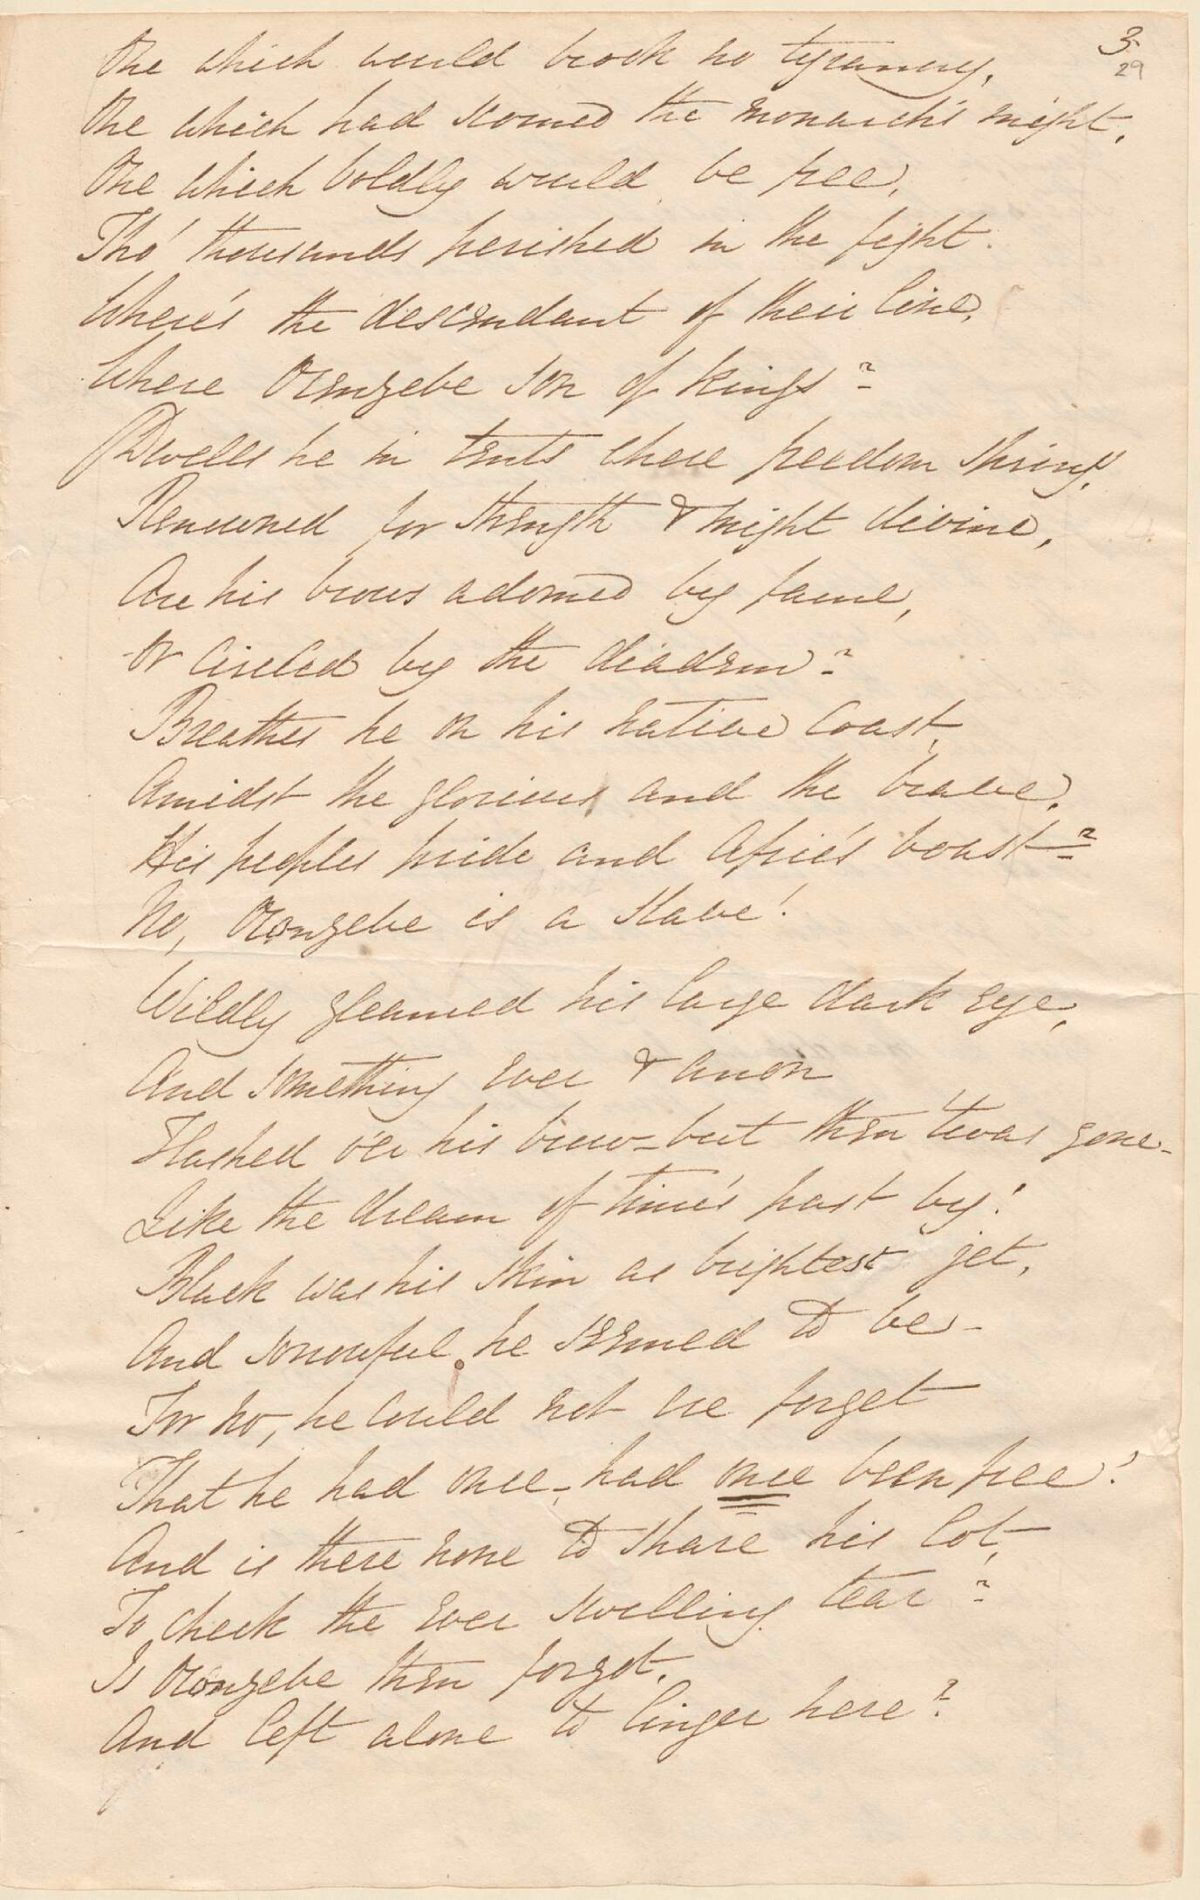 3
29
One which would brook no tyranny,
One which had scorned the monarch's might,
One which boldly would be free,
Tho' thousands perished in the fight.
Where's the descendant of their line,
Where Orongebe son of kings?
Dwells he in tents where freedom springs,
Renowned for strength & might divine,
Are his brows adorned by fame,
Or circled by the diadem?
Breathes he on his native coast,
Amidst the glorious and the brave,
His peoples pride and Afric's boast?
No, Orongebe is a slave!
Wildly gleamed his large dark eye,
And something ever & anon
Flashed o'er his brow - but then 'twas gone -
Like the dream of time's past by!
Black was his skin as brightest jet,
And sorrowful he seemed to be -
For no, he could not ere forget
That he had once, had once been free!
And is there none to share his lot,
To check the ever swelling tear?
Is Orongebe then forgot,
And left alone to linger here?